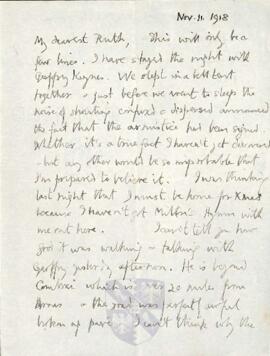 Nov. 11. 1918
My dearest Ruth, This will only be a
few lines. I have stayed the night with
Geoffrey Keynes. We slept in a tent
together & just before we went to sleep the
noise of shouting confused & dispersed announced
the fact that the armistice had been signed.
Whether it's a true fact I haven't yet discovered
- but any other would be so improbable that
I'm prepared to believe it. I was thinking
last night that I must be home for Xmas
because I haven't got Milton's Hymn with
me out here. I can't tell you how
good it was walking & talking with
Geoffrey yesterday afternoon. He is beyond
Cambrai which is over 20 miles from
Arras & the road was perfectly awful
broken up pavé I can't think why the